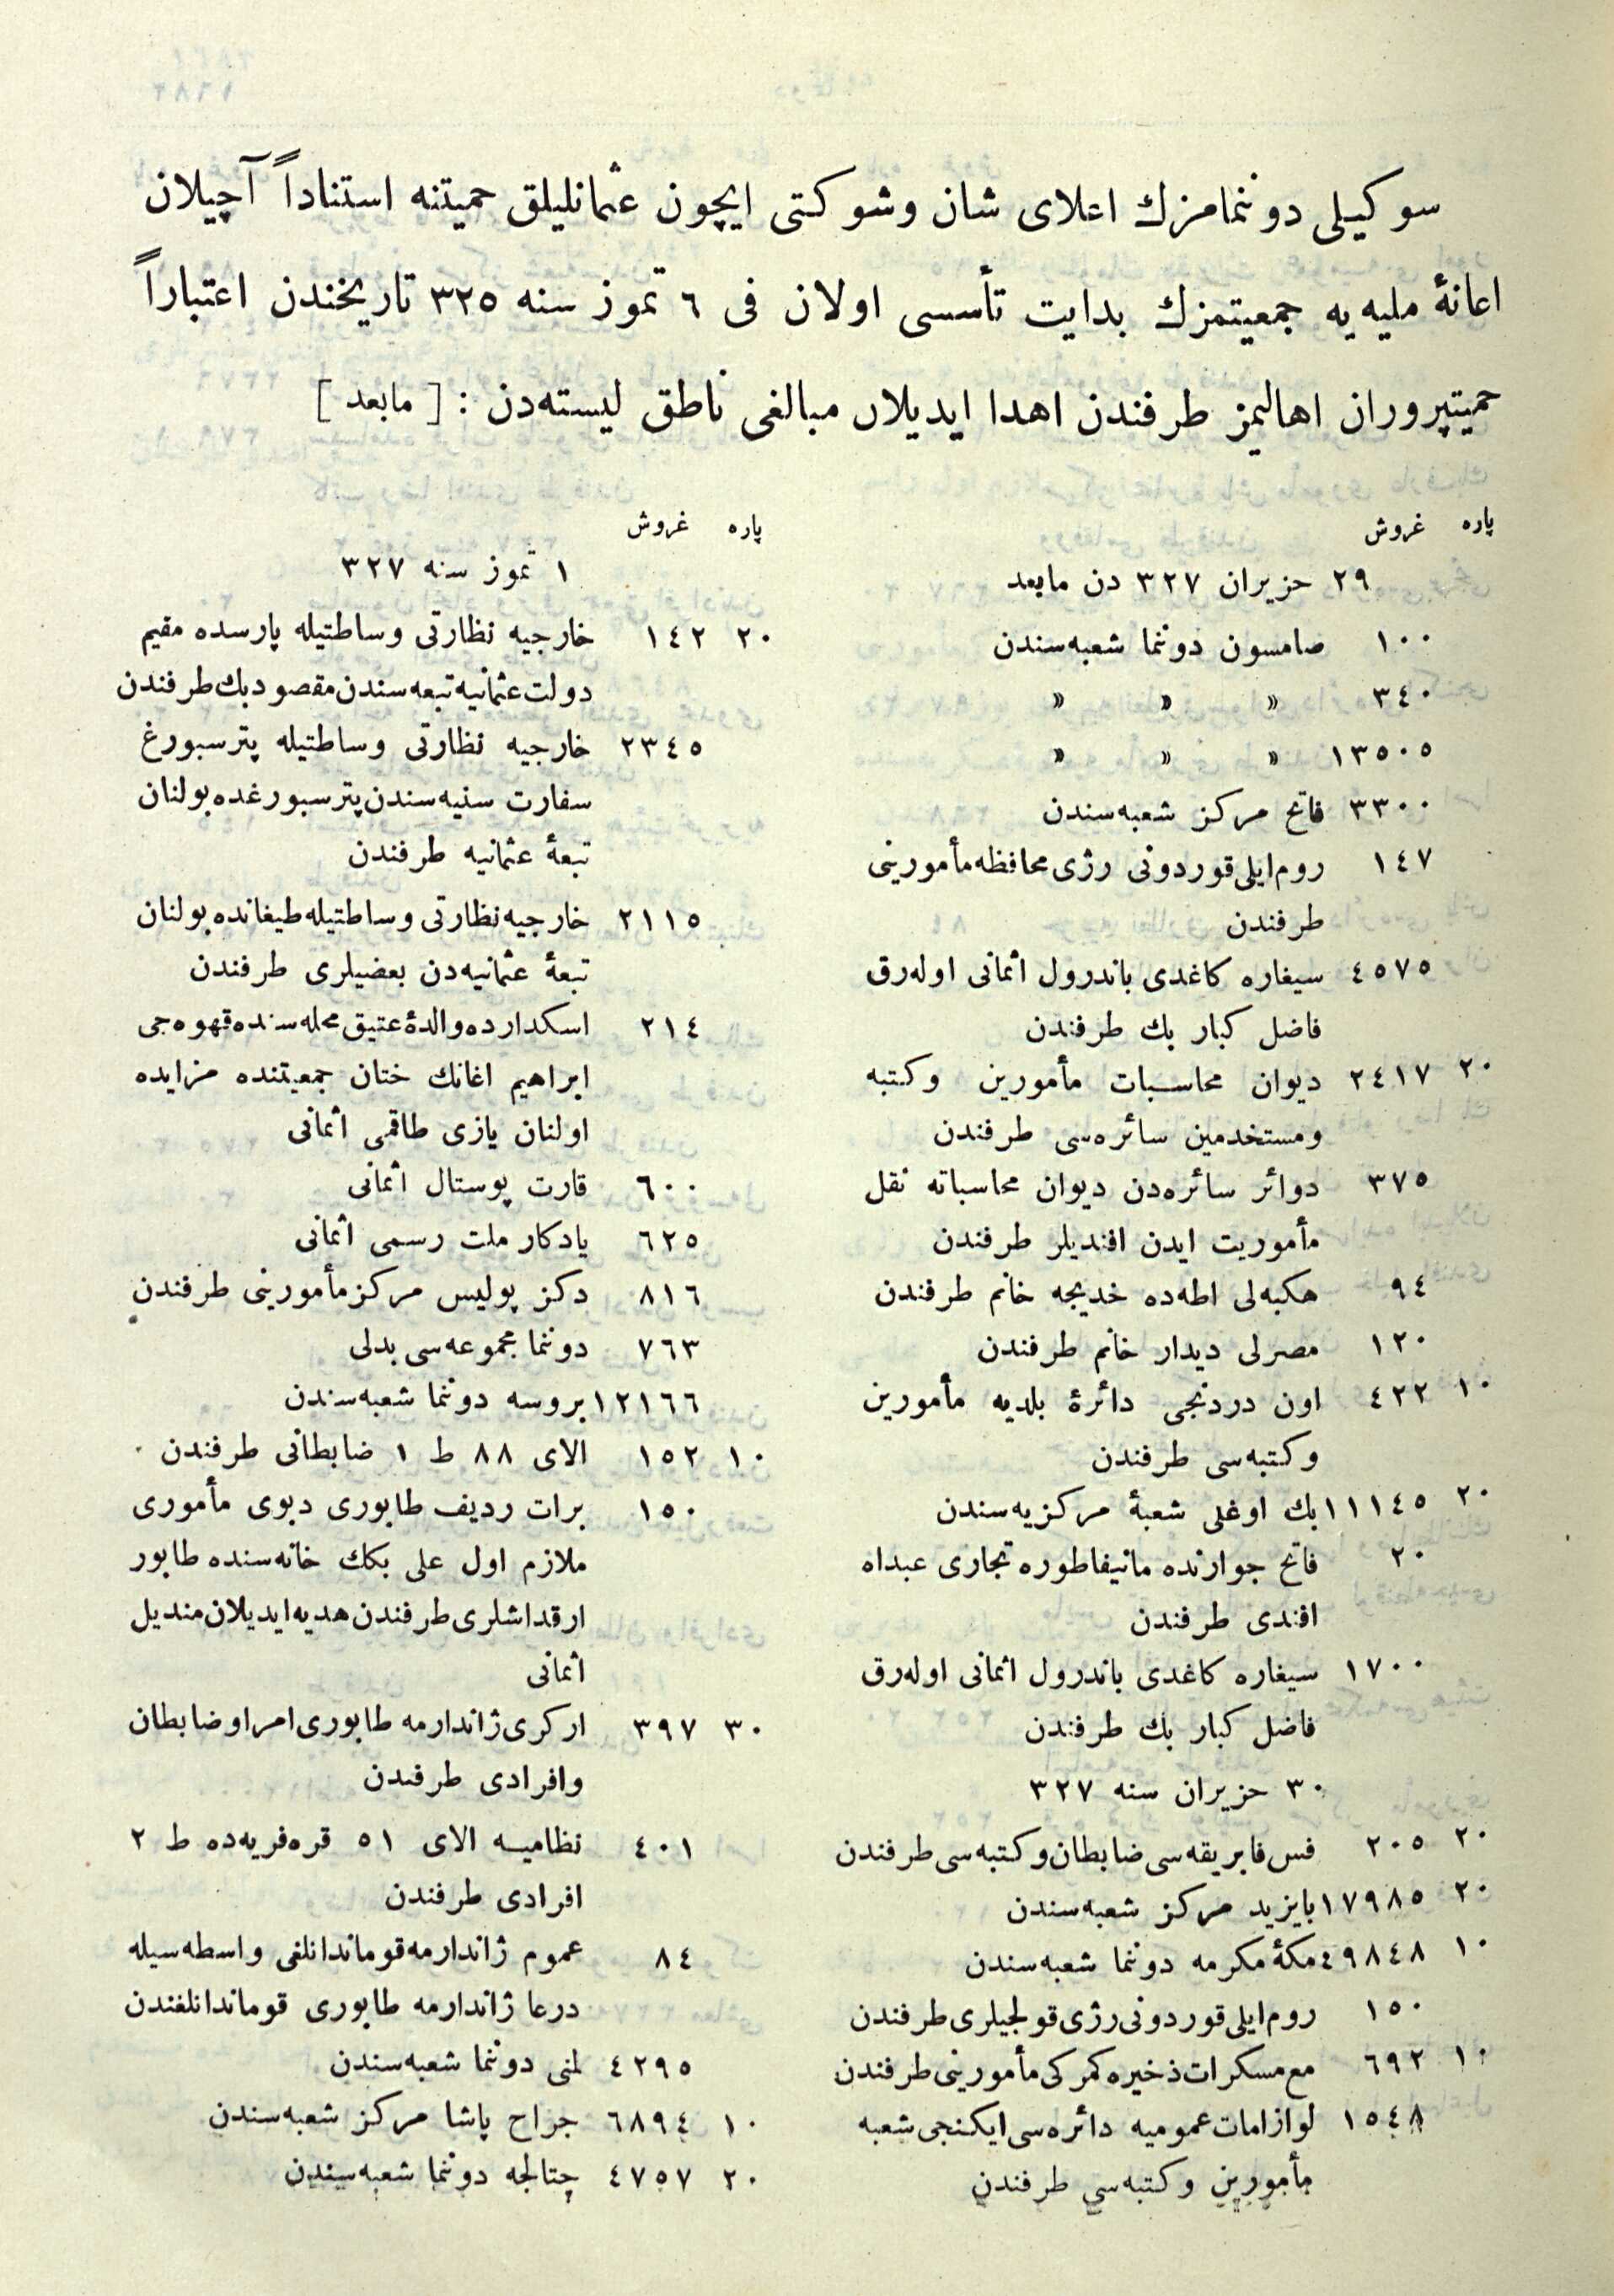 سوكیلی دوننمامزك اعلای شان وشوكتی ایچون عثمانلیلق حمیتنه استناداً آچیلان
اعانهٔ ملیه یه جمعیتمزك بدایت تأسسی اولان فی ٦ تموز سنه ٣٢٥ تاریخندن اعتباراً
حمیتپروران اهالیمز طرفندن اهدا ایدیلان مبالغی ناطق لیسته‌دن : [ مابعد ]
پاره غروش
٢٩ حزیران ٣٢٧ دن مابعد
١٠٠ صامسون دوننما شعبه‌سندن
٣٤٠ » » »
١٣٥٠٥ » » »
٣٣٠٠ فاتح مركز شعبه‌سندن
١٤٧ روم‌ایلی قوردونی رژی محافظه مأمورینی
طرفندن
٤٥٧٥ سیغاره كاغدی باندرول اثمانی اوله‌رق
فاضل كبار بك طرفندن
٢٠ ٢٤١٧ دیوان محاسبات مأمورین وكتبه
ومستخدمین سائره‌سی طرفندن
٣٧٥ دوائر سائره‌دن دیوان محاسباته نقل
مأموریت ایدن افندیلر طرفندن
٩٤ هكبه‌لی اطه‌ده خدیجه خانم طرفندن
١٢٠ مصرلی دیدار خانم طرفندن
١٠ ٤٢٢ اون دردنجی دائرهٔ بلدیه مأمورین
وكتبه‌سی طرفندن
٢٠ ١١١٤٥ بك اوغلی شعبهٔ مركزیه‌سندن
٢٠ فاتح جوارنده مانیفاطوره تجاری عبداه
افندی طرفندن
١٧٠٠ سیغاره كاغدی باندرول اثمانی اوله‌رق
فاضل كبار بك طرفندن
٣٠ حزیران سنه ٣٢٧
٢٠ ٢٠٥ فس فابریقه‌سی ضابطان وكتبه‌سی طرفندن
٢٠ ١٧٩٨٥ بایزید مركز شعبه‌سندن
١٠ ٤٩٨٤٨ مكهٔ مكرمه دوننما شعبه‌سندن
١٥٠ روم‌ایلی قوردونی رژی قولجیلری طرفندن
١٠ ٦٩٢ مع مسكرات ذخیره كمركی مأمورینی طرفندن
١٥٤٨ لوازامات عمومیه دائره‌سی ایكنجی شعبه
مأمورین وكتبه‌سی طرفندن
پاره غروش
١ تموز سنه ٣٢٧
٢٠ ١٤٢ خارجیه نظارتی وساطتیله پارسده مقیم
دولت عثمانیه تبعه‌سندن مقصود بك طرفندن
٢٣٤٥ خارجیه نظارتی وساطتیله پترسبورغ
سفارت سنیه‌سندن پترسبورغده بولنان
تبعهٔ عثمانیه طرفندن
٢١١٥ خارجیه نظارتی وساطتیله طیغانده بولنان
تبعهٔ عثمانیه‌دن بعضیلری طرفندن
٢١٤ اسكدارده والدهٔ عتیق محله‌سنده قهوه‌جی
ابراهیم اغانك ختان جمعیتنده مزایده
اولنان یازی طاقمی اثمانی
٦٠٠ قارت پوستال اثمانی
٦٢٥ یادكار ملت رسمی اثمانی
٨١٦ دكز پولیس مركز مأمورینی طرفندن
٧٦٣ دوننما مجموعه‌سی بدلی
١٢١٦٦ بروسه دوننما شعبه‌سندن
١٠ ١٥٢ الای ٨٨ ط ١ ضابطانی طرفندن
١٥٠ برات ردیف طابوری دبوی مأموری
ملازم اول علی بكك خانه‌سنده طابور
ارقداشلری طرفندن هدیه ایدیلان مندیل
اثمانی
٣٠ ٣٩٧ اركری ژاندارمه طابوری امرا وضابطان
وافرادی طرفندن
٤٠١ نظامیه الای ٥١ قره‌فریه‌ده ط ٢
افرادی طرفندن
٨٤ عموم ژاندارمه قوماندانلغی واسطه‌سیله
درعا ژاندارمه طابوری قوماندانلغندن
٤٢٩٥ لمنی دوننما شعبه‌سندن
١٠ ٦٨٩٤ جراح پاشا مركز شعبه‌سندن
٢٠ ٤٧٥٧ چتالجه دوننما شعبه‌سندن